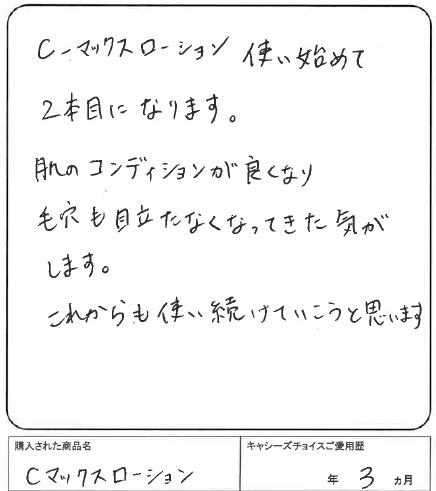 C-マックスローション 使い始めて
2本目になります。
肌のコンディションが良くなり
毛穴も目立たなくなってきた気が
します。
これからも使い続けていこうと思います
購入された商品名
Cマックスローション
キャシーズチョイスご愛用歴
年 3 ヵ月